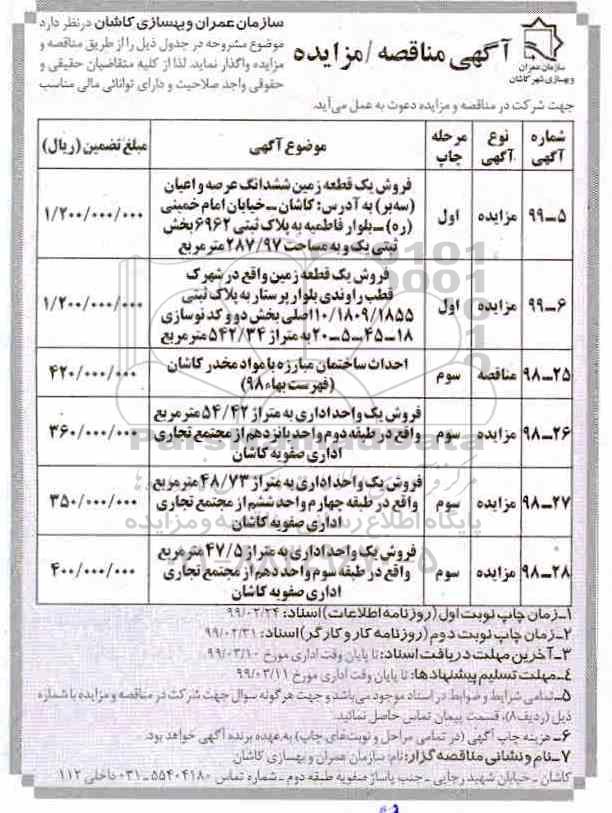 سازمان عمران و بهسازی شهر کاشان
آگهی مناقصه / مزایده
سازمان عمران و بهسازی کاشان در نظر دارد
موضوع مشروحه در جدول ذیل را از طریق مناقصه و
مزایده واگذار نماید. لذا از کلیه متقاضیان حقیقی و
حقوقی واجد صلاحیت و دارای توانائی مالی مناسب
جهت شرکت در مناقصه و مزایده دعوت به عمل می‌آید.
شماره آگهی نوع آگهی مرحله چاپ موضوع آگهی مبلغ تضمین (ریال)
۵-۹۹ مزایده اول فروش یک قطعه زمین ششدانگ عرصه و اعیان
(سه‌بر) به آدرس: کاشان - خیابان امام خمینی
(ره) - بلوار فاطمیه به پلاک ثبتی ۶۹۶۲ بخش
ثبتی یک و به مساحت ۲۸۷/۹۷ مترمربع
۱/۲۰۰/۰۰۰/۰۰۰
۶-۹۹ مزایده اول فروش یک قطعه زمین واقع در شهرک
قطب راوندی بلوار پرستار به پلاک ثبتی
۱۰/۱۸۰۹/۱۸۵۵ اصلی بخش دو و کد نوسازی
۱۸-۴۵-۵-۲۰ به متراژ ۵۴۲/۳۴ مترمربع
۱/۲۰۰/۰۰۰/۰۰۰
۲۵-۹۸ مناقصه سوم احداث ساختمان مبارزه با مواد مخدر کاشان
(فهرست بهاء ۹۸)
۴۲۰/۰۰۰/۰۰۰
۲۶-۹۸ مزایده سوم فروش یک واحد اداری به متراژ ۵۴/۴۲ مترمربع
واقع در طبقه دوم واحد پانزدهم از مجتمع تجاری
اداری صفویه کاشان
۳۶۰/۰۰۰/۰۰۰
۲۷-۹۸ مزایده سوم فروش یک واحد اداری به متراژ ۴۸/۷۳ مترمربع
واقع در طبقه چهارم واحد ششم از مجتمع تجاری
اداری صفویه کاشان
۳۵۰/۰۰۰/۰۰۰
۲۸-۹۸ مزایده سوم فروش یک واحد اداری به متراژ ۴۷/۵ مترمربع
واقع در طبقه سوم واحد دهم از مجتمع تجاری
اداری صفویه کاشان
۴۰۰/۰۰۰/۰۰۰
۱- زمان چاپ نوبت اول (روزنامه اطلاعات) اسناد: ۹۹/۰۲/۲۴
۲- زمان چاپ نوبت دوم (روزنامه کار و کارگر) اسناد: ۹۹/۰۲/۳۱
۳- آخرین مهلت دریافت اسناد: تا پایان وقت اداری مورخ ۹۹/۰۳/۱۰
۴- مهلت تسلیم پیشنهادها: تا پایان وقت اداری مورخ ۹۹/۰۳/۱۱
۵- تمامی شرایط و ضوابط در اسناد موجود می‌باشد و جهت هرگونه سوال جهت شرکت در مناقصه و مزایده با شماره
ذیل (ردیف ۸)، قسمت پیمان تماس حاصل نمائید.
۶- هزینه چاپ آگهی (در تمامی مراحل و نوبت‌های چاپ) به عهده برنده آگهی خواهد بود.
۷- نام و نشانی مناقصه گزار: نام: سازمان عمران و بهسازی کاشان
کاشان - خیابان شهید رجایی - جنب پاساژ صفویه طبقه دوم - شماره تماس ۵۵۴۰۴۱۸۰-۰۳۱ داخلی ۱۱۲